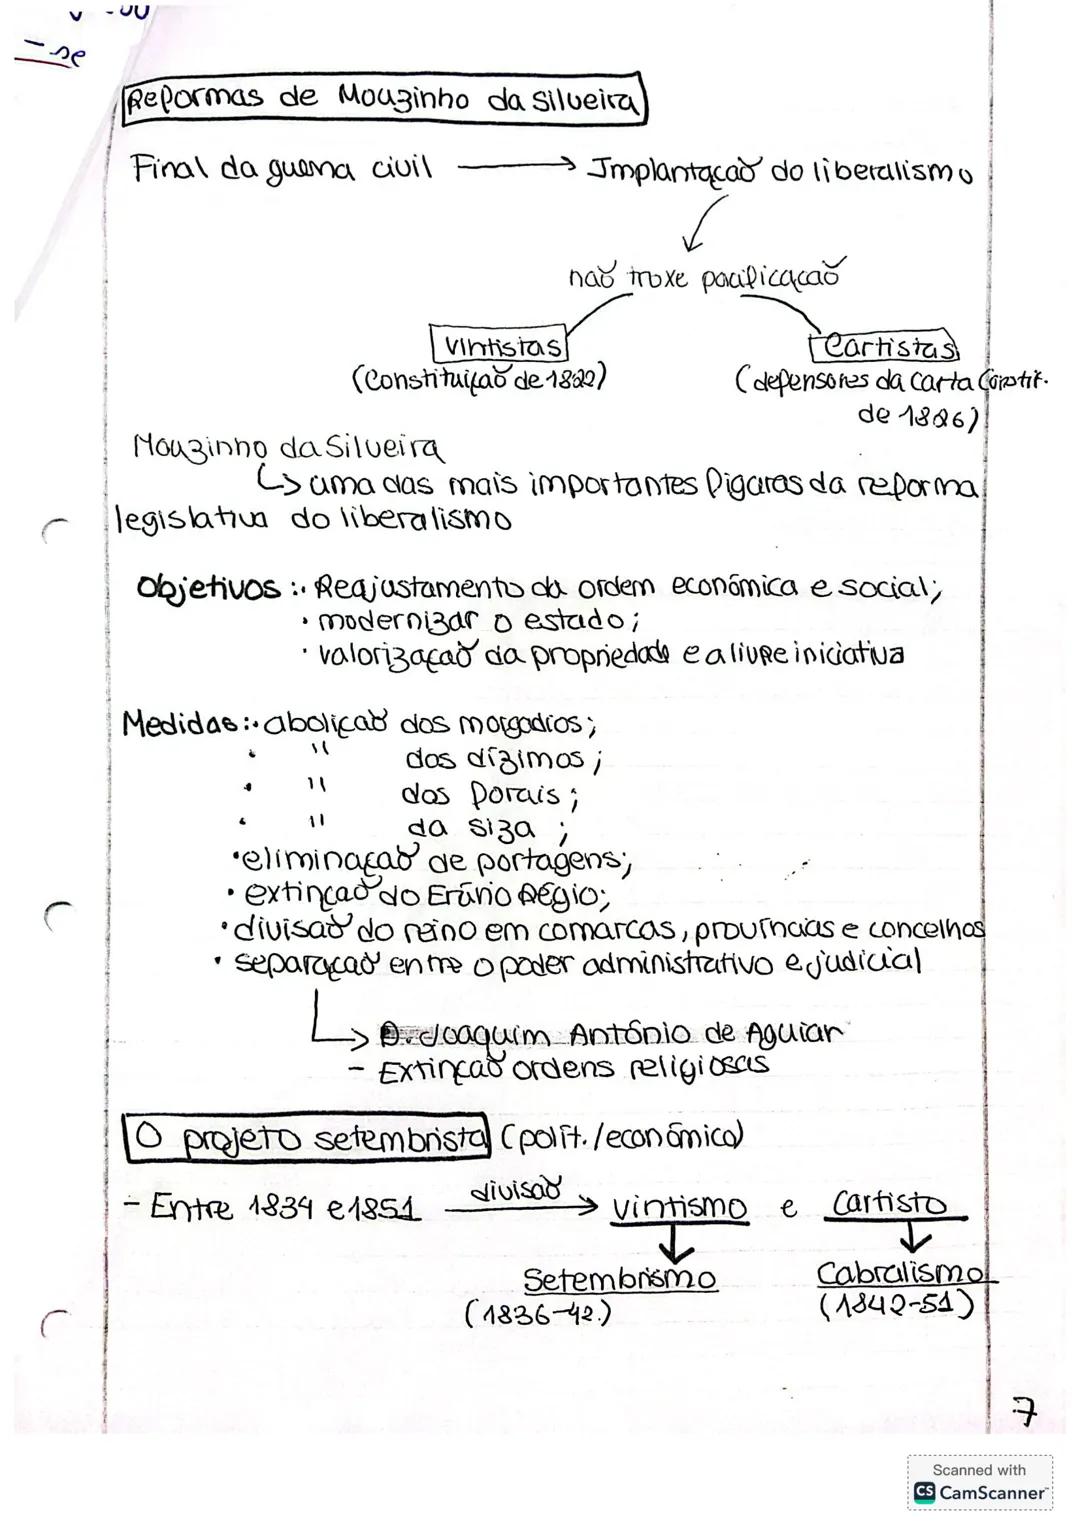 -se
Reformas de Mouzinho da Silveira
Final da guerra civil → Implantação do liberalismo
não troxe pacificação
Vintistas
Cartistas
(Constituição de 1822)
(defensores da Carta Constit.
de 1826)
Mouzinho da Silveira
↳ uma das mais importantes figuras da reforma
legislativa do liberalismo
Objetivos :· Reajustamento da ordem económica e social;
· modernizar o estado;
· valorização da propriedade e a livre iniciativa
Medidas :· abolição dos morgadios;
· " dos dízimos;
· " dos forais;
· " da siza;
· eliminação de portagens;
· extinção do Erário Régio;
· divisão do reino em comarcas, províncias e concelhos
· separação entre o poder administrativo e judicial
↳ D. Joaquim António de Aguiar
- Extinção ordens religiosas
O projeto setembrista (polít./económica)
- Entre 1834 e 1851 divisão → vintismo e Cartisto
Setembrismo
Cabralismo
(1836-42)
(1842-51)
7
Scanned with
CS CamScanner